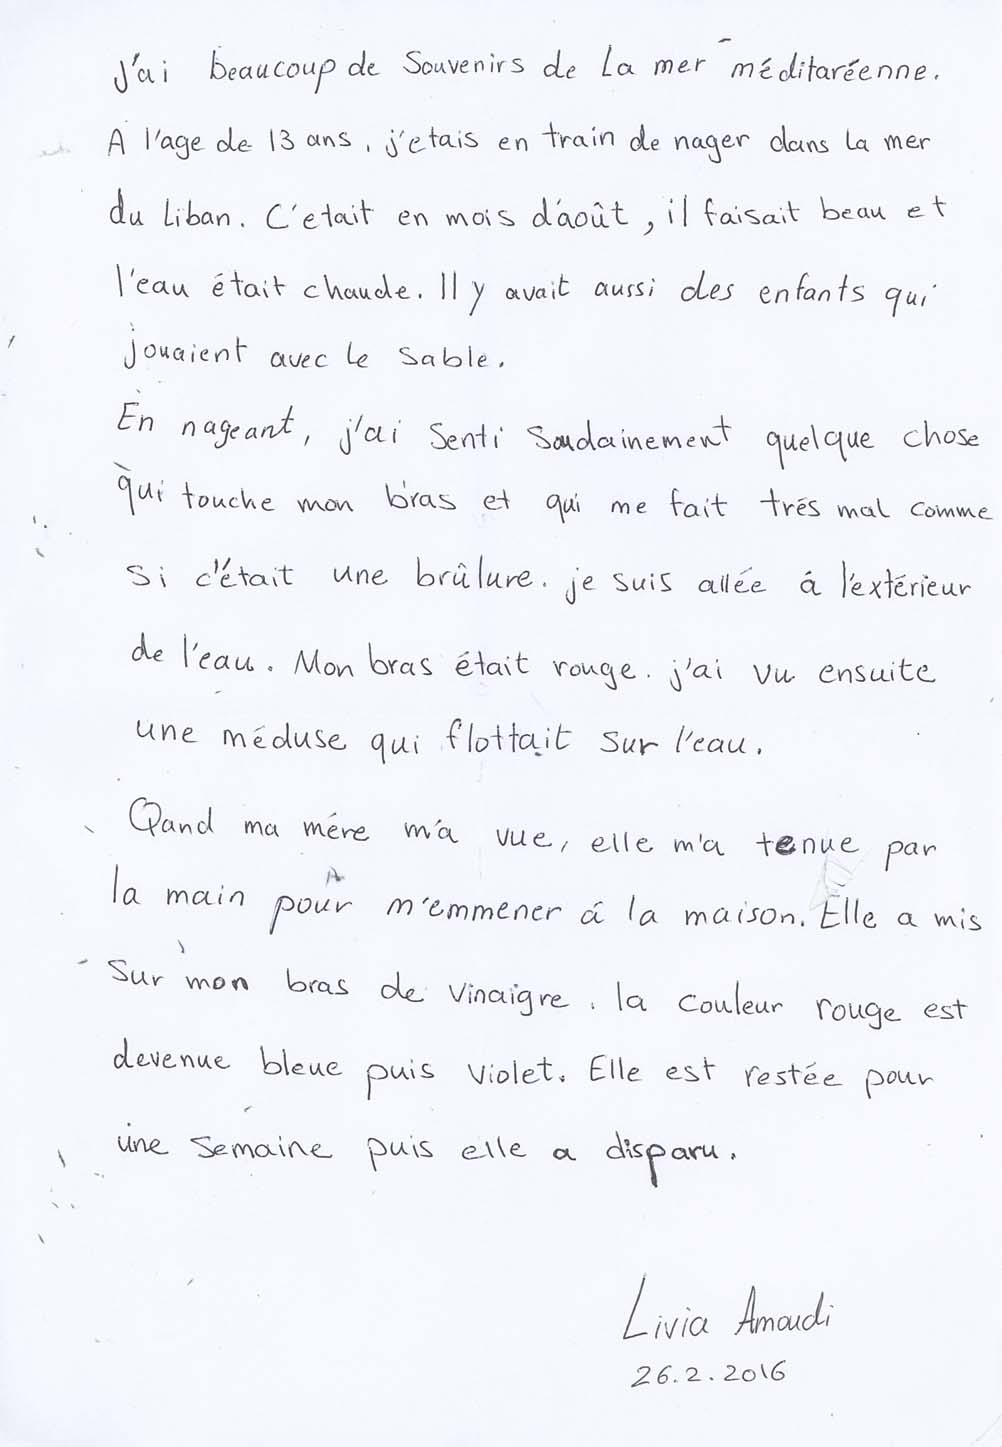 J'ai beaucoup de Souvenirs de La mer méditaréenne.
A l'age de 13 ans, j'etais en train de nager dans la mer
du Liban. C'etait en mois d'août, il faisait beau et
l'eau était chaude. Il y avait aussi des enfants qui
jouaient avec le sable.
En nageant, j'ai senti soudainement quelque chose
qui touche mon bras et qui me fait trés mal comme
si c'était une brûlure. je suis allée á l'extérieur
de l'eau. Mon bras était rouge. j'ai vu ensuite
une méduse qui flottait sur l'eau.
Qand ma mére m'a vue, elle m'a tenue par
la main pour m'emmener á la maison. Elle a mis
sur mon bras de vinaigre. la couleur rouge est
devenue bleue puis violet. Elle est restée pour
une semaine puis elle a disparu.
Livia Amoudi
26.2.2016